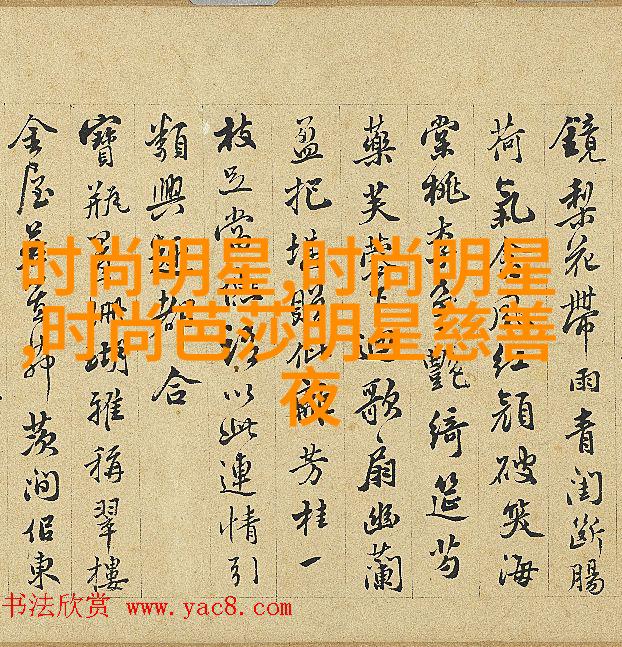 鏡梨花帶雨青閨斷腸
荷氣含風紅顏破笑海
棠桃李艷綺筵芍
藥芙蓉迎歌扇幽蘭
盈把堪贈仙芳桂一
枝足當以此連情引
類興題都合
寶瓶珊瑚雅稱翠樓
金屋茨澗侶東
时尚明星,时尚明星
,时尚芭莎明星慈善
夜
书法欣赏 www.yac8.com